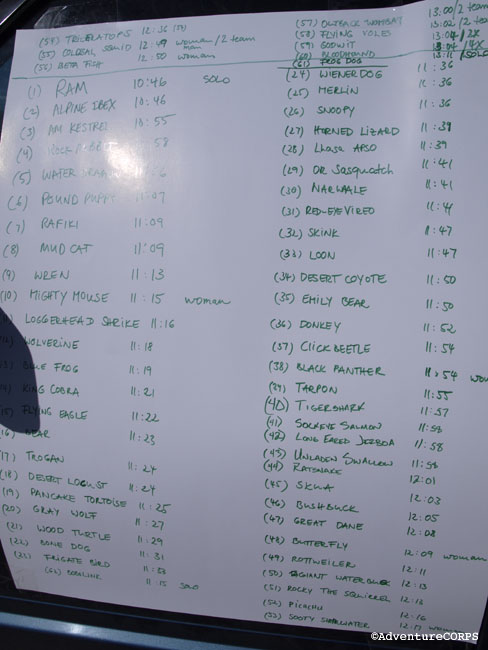 (54) TRICERATOPS 12:36
(55) COLOSAL SQUID 12:49 woman/2 team
man
(56) BETA FISH 12:50 woman
(1) RAM 10:46 SOLO
(2) ALPINE IBEX 10:46
(3) AM KESTREL 10:55
(4) 58
(5) WATER
(6) POUND PUPPY 11:07
(7) RAFIKI 11:09
(8) MUD CAT 11:09
(9) WREN 11:13
(10) MIGHTY MOUSE 11:15 woman
LOGGERHEAD SHRIKE 11:16
WOLVERINE 11:18
BLUE FROG 11:19
KING COBRA 11:21
(15) FLYING EAGLE 11:22
(16) BEAR 11:23
(17) TROGAN 11:24
(18) DESERT LOCUST 11:24
(19) PANCAKE TORTOISE 11:25
(20) GRAY WOLF 11:27
(21) WOOD TURTLE 11:29
(22) BONE DOG 11:31
FRIGATE BIRD 11:33
11:15 SOLO
(57) OUTBACK WOMBAT 13:00/2 team
(58) FLYING VOLES 13:02/2 team
(59) GODWIT 13:04/2X
(60) BLOODHOUND 13:04
(61) FROG DOG 13:11 (SOLO
(24) WIENERDOG 11:36
(25) MERLIN 11:36
(26) SNOOPY 11:36
(27) HORNED LIZARD 11:39
(28) Lhasa APSO 11:39
(29) OR Sasquatch 11:41
(30) NARWALE 11:41
(31) RED-EYE VIREO 11:4
(32) SKINK 11:47
(33) LOON 11:47
(34) DESERT COYOTE 11:50
(35) EMILY BEAR 11:50
(36) DONKEY 11:52
(37) CLICK BEETLE 11:54
(38) BLACK PANTHER 11:54 wom
(39) TARPON 11:55
(40) TIGERSHARK 11:57
(41) SOCKEYE SALMON 11:58
(42) LONG EARED JERBOA 11:58
(43) UNLADEN SWALLOW 11:58
(44) RATSNAKE 12:01
(45) SKUA 12:03
(46) BUSHBUCK 12:05
(47) GREAT DANE 12:08
(48) BUTTERFLY 12:09 woman
(49) ROTTWEILER 12:11
(50) GIANT WATER 12:13
(51) ROCKY THE SQUIRREL 12:13
(52) PICACHU 12:16
(53) SOOTY SHEARWATER 12:17 woman
©AdventureCORPS